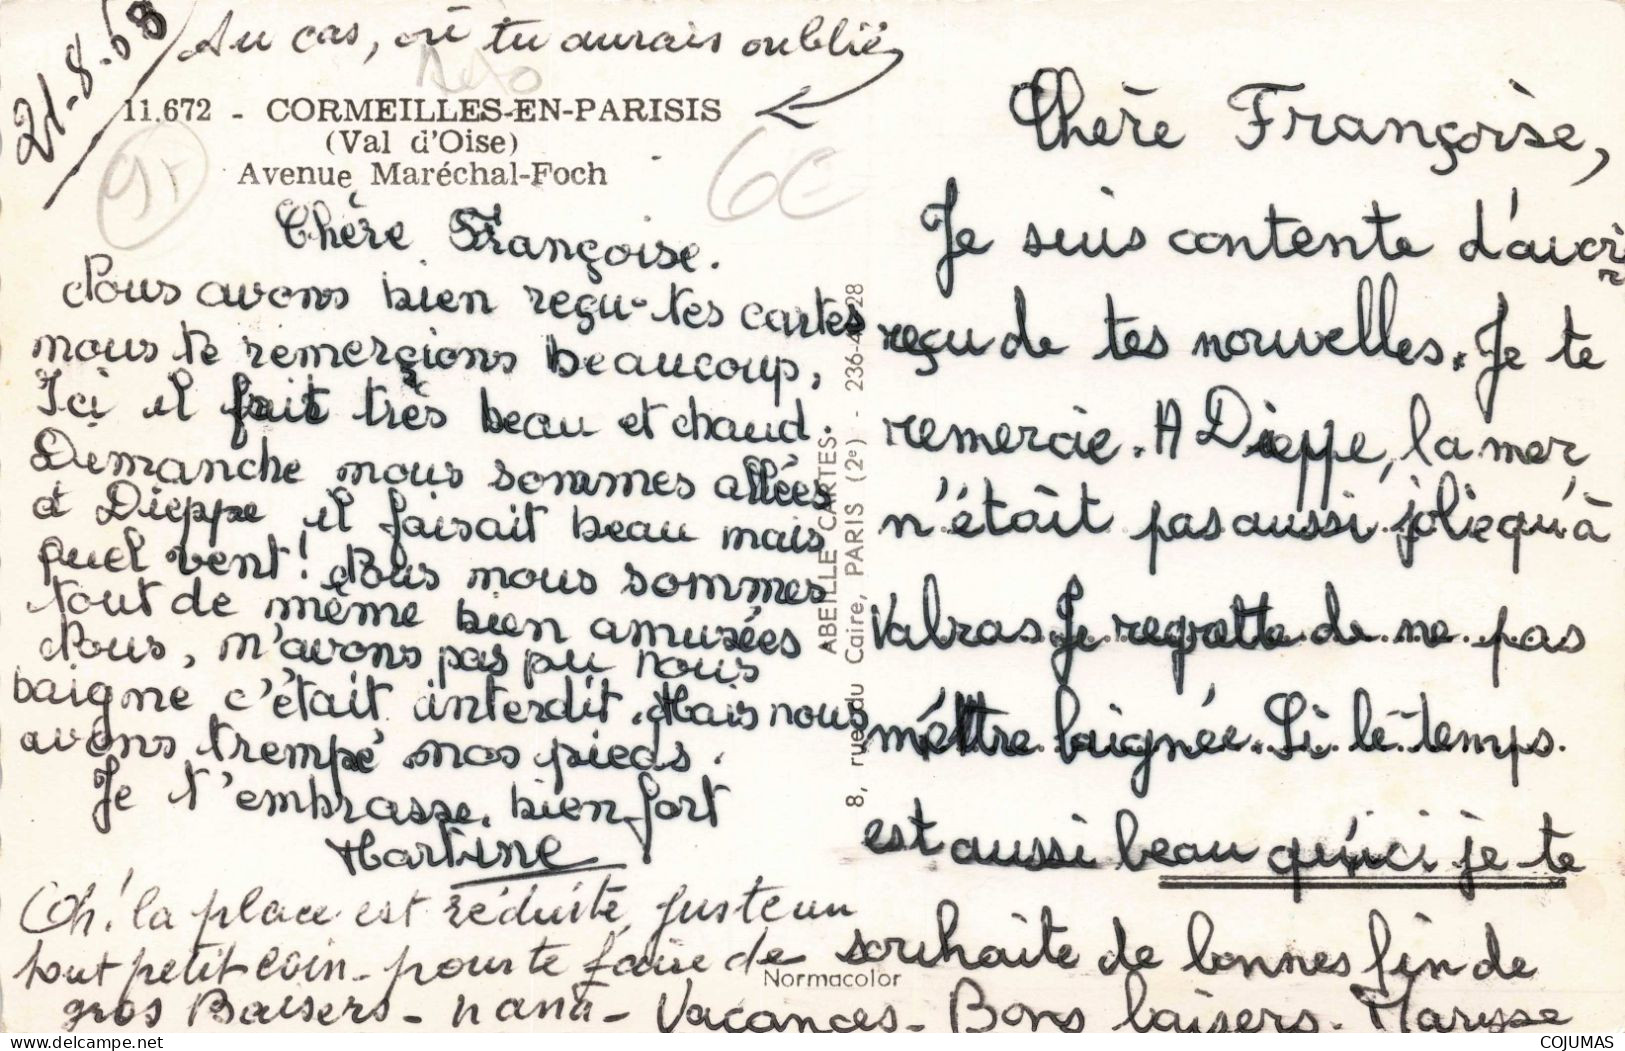 21-8-68
Au cas, où tu aurais oublié
11.672 - CORMEILLES-EN-PARISIS
(Val d'Oise)
Avenue Maréchal-Foch
6€
Chère Françoise.
Nous avons bien reçu tes cartes
nous te remerçions beaucoup,
Ici il fait très beau et chaud.
Dimanche nous sommes allées
à Dieppe il faisait beau mais
quel vent! Nous nous sommes
tout de même bien amusées
Nous, n'avons pas pu nous
baigné c'était interdit. Mais nous
avons trempé nos pieds.
Je t'embrasse bien fort
Martine
Oh! la place est réduite, juste un
tout petit coin - pour te faire de
gros Baisers - nana -
ABEILLE-CARTES
8, rue du Caire, PARIS (2e) - 236-41-28
Normacolor
Chère Françoise,
Je suis contente d'avoir
reçu de tes nouvelles. Je te
remercie. A Dieppe, la mer
n'était pas aussi jolie qu'à
Valras. Je regrette de ne pas
m'être baignée. Si le temps
est aussi beau qu'ici je te
souhaite de bonnes fin de
Vacances - Bons baisers. Maryse
COJUMAS